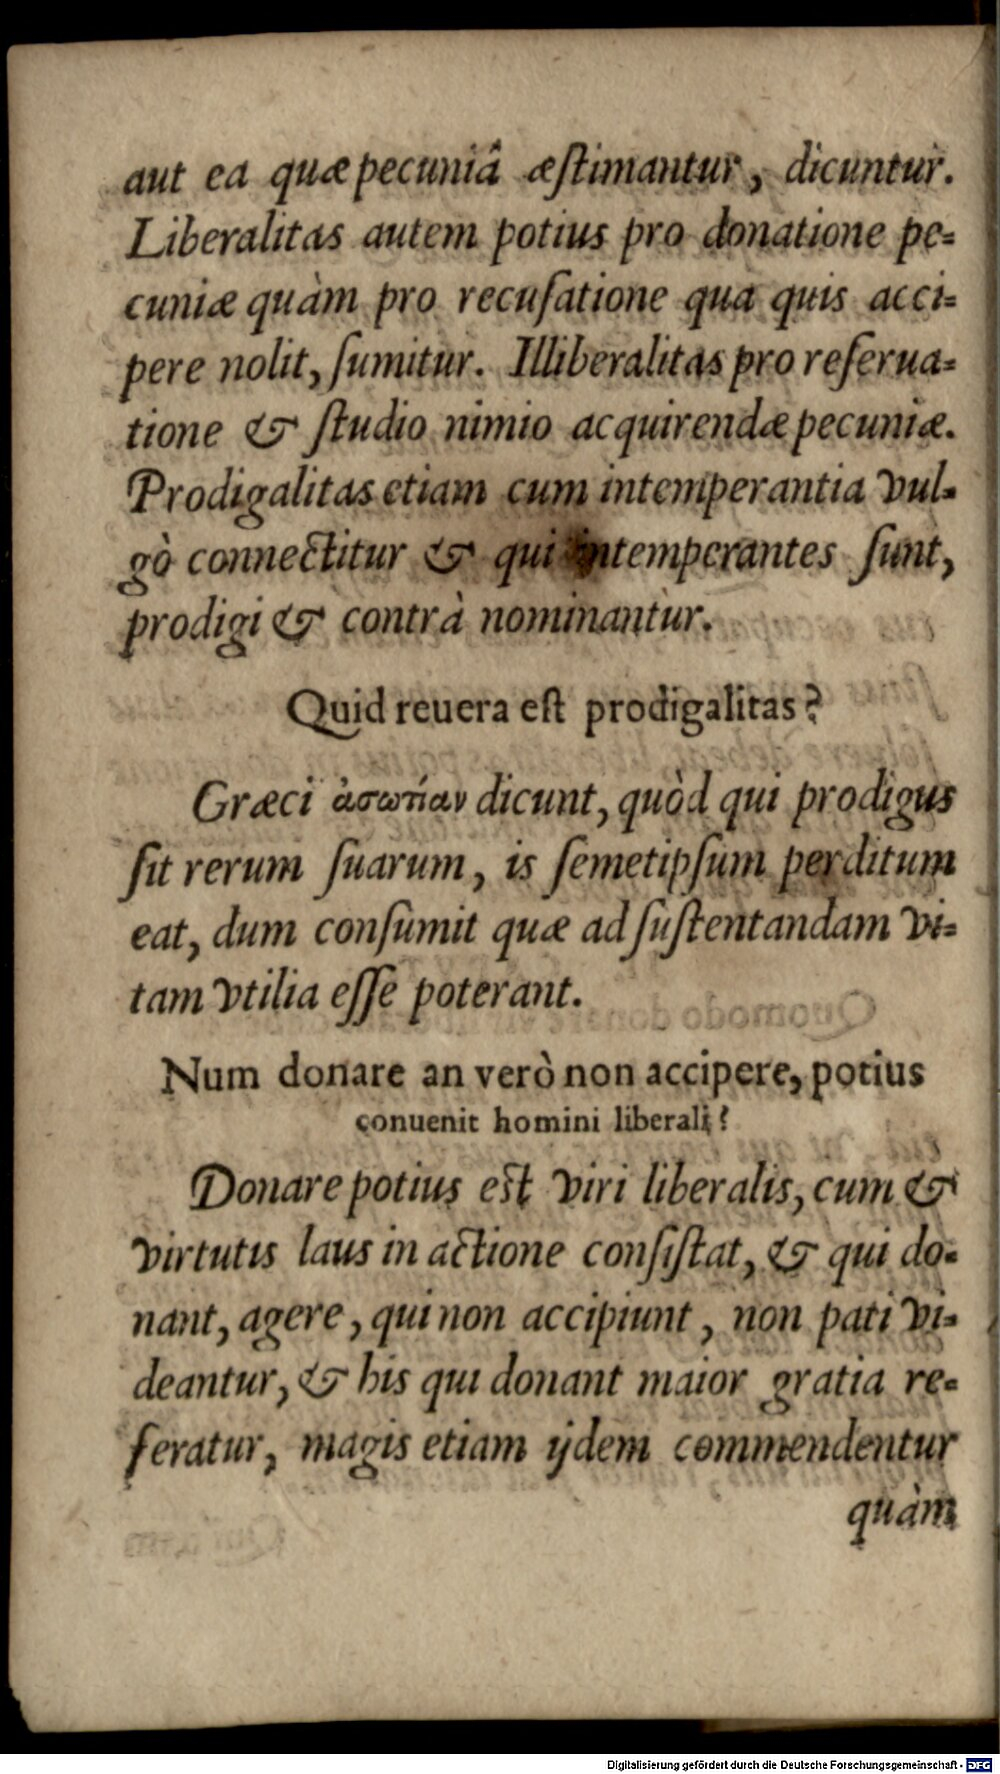 aut ea quæ pecuniâ æſtimantur, dicuntur.
Liberalitas autem potius pro donatione pe=
cuniæ quàm pro recuſatione qua quis acci=
pere nolit, ſumitur. Illiberalitas pro reſerua=
tione & ſtudio nimio acquirendæ pecuniæ.
Prodigalitas etiam cum intemperantia vul=
gò connectitur & qui intemperantes ſunt,
prodigi & contrà nominantur.
Quid reuera eſt prodigalitas?
Græci ἀσωτίαν dicunt, quòd qui prodigus
ſit rerum ſuarum, is ſemetipſum perditum
eat, dum conſumit quæ ad ſuſtentandam vi=
tam vtilia eſſe poterant.
Num donare an verò non accipere, potius
conuenit homini liberali?
Donare potius eſt viri liberalis, cum &
virtutis laus in actione conſiſtat, & qui do=
nant, agere, qui non accipiunt, non pati vi=
deantur, & his qui donant maior gratia re=
feratur, magis etiam ijdem commendentur
quàm
Digitalisierung gefördert durch die Deutsche Forschungsgemeinschaft - DFG